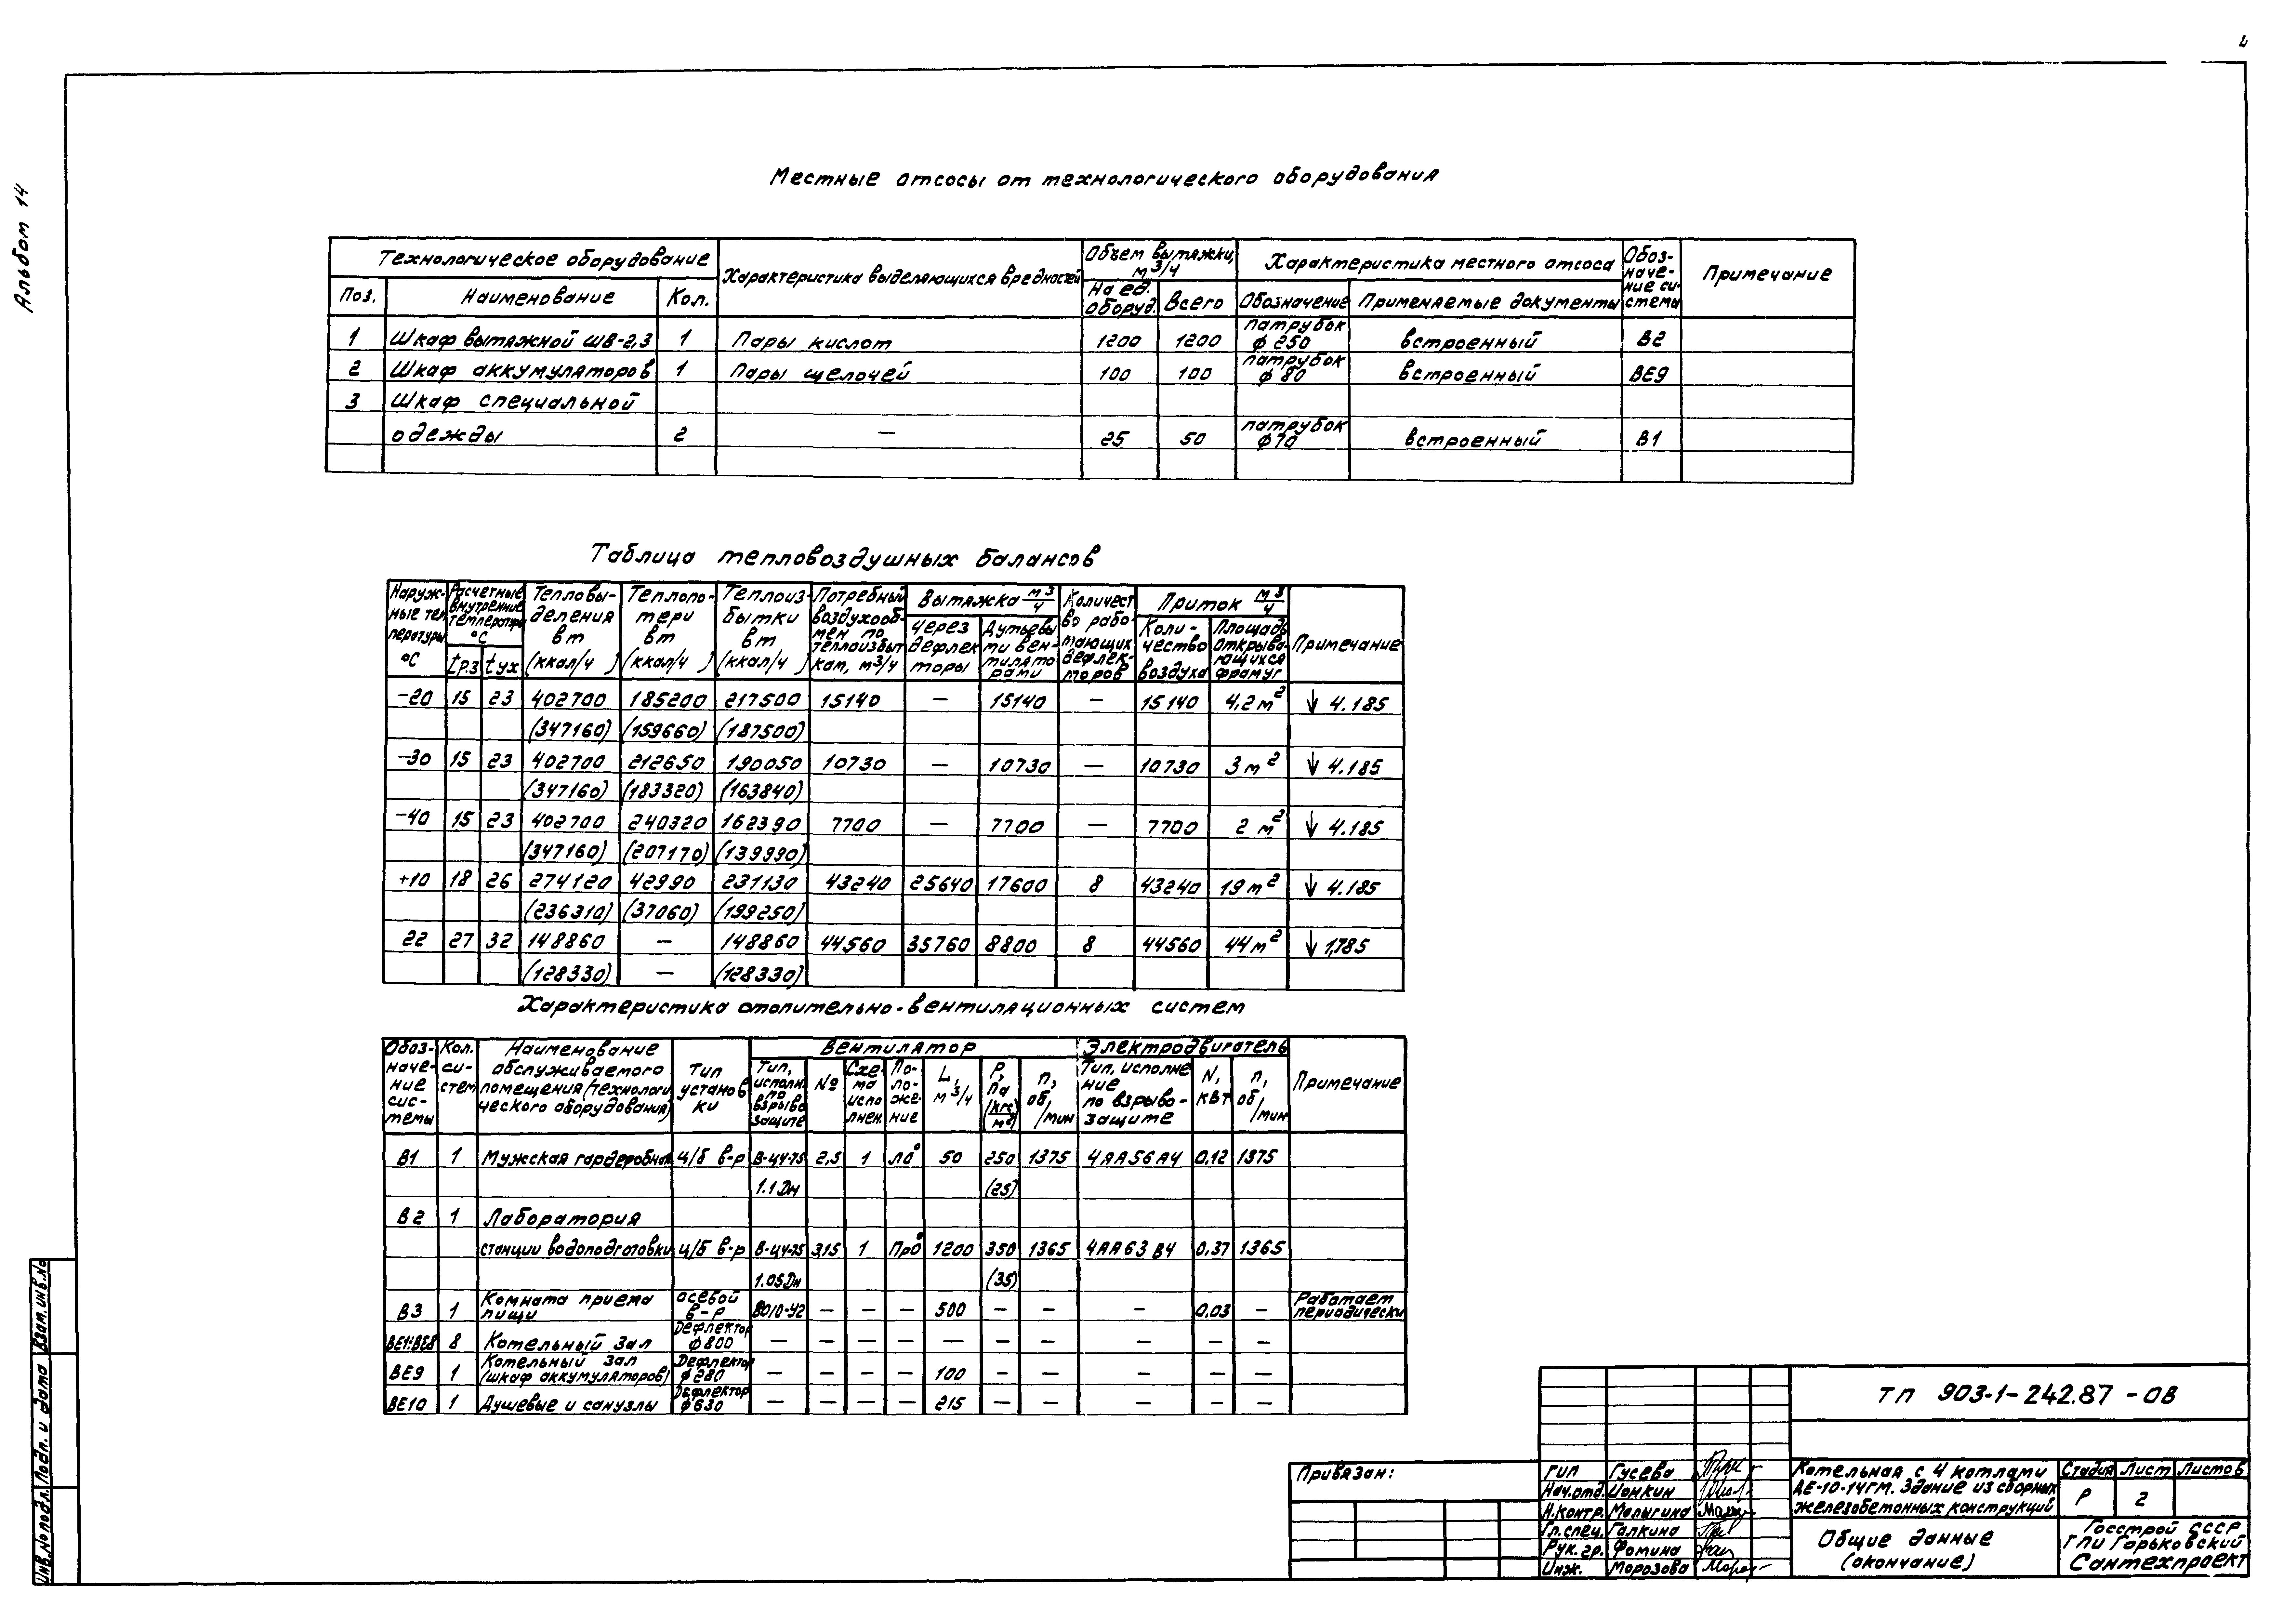 Альбом 14
Местные отсосы от технологического оборудования
Технологическое оборудование | Характеристика выделяющихся вредностей | Объем вытяжки, м³/ч | Характеристика местного отсоса | Обозначение системы | Примечание
Поз. | Наименование | Кол. | На ед. оборуд. | Всего | Обозначение | Применяемые документы
1 | Шкаф вытяжной ШВ-2,3 | 1 | Пары кислот | 1200 | 1200 | патрубок ф 250 | встроенный | В2
2 | Шкаф аккумуляторов | 1 | Пары щелочей | 100 | 100 | патрубок ф 80 | встроенный | ВЕ9
3 | Шкаф специальной
одежды | 2 | — | 25 | 50 | патрубок ф70 | встроенный | В1
Таблица тепловоздушных балансов
Наружные температуры °С | Расчетные внутренние температуры °С | Тепловыделения вт (ккал/ч) | Теплопотери вт (ккал/ч) | Теплоизбытки вт (ккал/ч) | Потребный воздухообмен по теплоизбыткам, м³/ч | Вытяжка м³/ч | Количество работающих дефлекторов | Приток м³/ч | Примечание
tр.з | tух | через дефлекторы | Дутьевыми вентиляторами | Количество воздуха | Площадь открывающихся фрамуг
-20 | 15 | 23 | 402700 | 185200 | 217500 | 15140 | — | 15140 | — | 15140 | 4,2 м² | ↓ 4.185
(347160) | (159660) | (187500)
-30 | 15 | 23 | 402700 | 212650 | 190050 | 10730 | — | 10730 | — | 10730 | 3 м² | ↓ 4.185
(347160) | (183320) | (163840)
-40 | 15 | 23 | 402700 | 240320 | 162390 | 7700 | — | 7700 | — | 7700 | 2 м² | ↓ 4.185
(347160) | (207170) | (139990)
+10 | 18 | 26 | 274120 | 42990 | 231130 | 43240 | 25640 | 17600 | 8 | 43240 | 19 м² | ↓ 4.185
(236310) | (37060) | (199250)
22 | 27 | 32 | 148860 | — | 148860 | 44560 | 35760 | 8800 | 8 | 44560 | 44 м² | ↓ 1,785
(128330) | — | (128330)
Характеристика отопительно-вентиляционных систем
Обозначение системы | Кол. систем | Наименование обслуживаемого помещения (технологического оборудования) | Тип установки | Вентилятор | Электродвигатель | Примечание
Тип, исполн. по взрывозащите | № | Схема исполнен. | Положение | L, м³/ч | Р, Па (кгс/м²) | п, об/мин | Тип, исполнение по взрывозащите | N, кВт | п, об/мин
В1 | 1 | Мужская гардеробная | ц/б в-р | В-Ц4-75 | 2,5 | 1 | Л0° | 50 | 250 | 1375 | 4АА56А4 | 0,12 | 1375
1.1 Дн | (25)
В2 | 1 | Лаборатория
станции водоподготовки | ц/б в-р | В-Ц4-75 | 3,15 | 1 | Пр0° | 1200 | 350 | 1365 | 4АА63В4 | 0,37 | 1365
1.05Дн | (35)
В3 | 1 | Комната приема пищи | осевой в-р | ВО10-У2 | — | — | — | 500 | — | — | — | 0.03 | — | Работает периодически
ВЕ1÷ВЕ8 | 8 | Котельный зал | Дефлектор ф800 | — | — | — | — | — | — | — | — | — | —
ВЕ9 | 1 | Котельный зал (шкаф аккумуляторов) | Дефлектор ф280 | — | — | — | — | 100 | — | — | — | — | —
ВЕ10 | 1 | Душевые и санузлы | Дефлектор ф630 | — | — | — | — | 215 | — | — | — | — | —
Взам.инв.№
Подп. и дата
Инв.№подл.
Привязан:
ТП 903-1-242.87 -ОВ
ГИП Гусева
Нач.отд. Ионкин
Н.контр. Малыгина
Гл.спец. Галкина
Рук.гр. Фомина
Инж. Морозова
Котельная с 4 котлами
ДЕ-10-14ГМ. Здание из сборных
железобетонных конструкций
Стадия | Лист | Листов
Р | 2
Общие данные
(окончание)
Госстрой СССР
ГПИ Горьковский
Сантехпроект